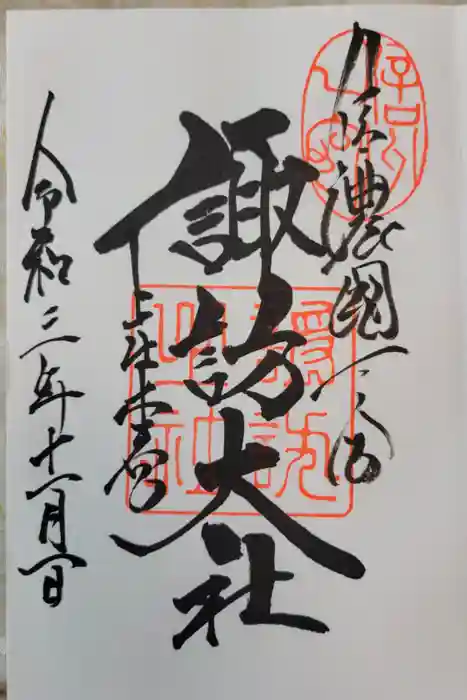 信濃國一之宮
諏訪大社
上社本宮
令和三年十一月一日